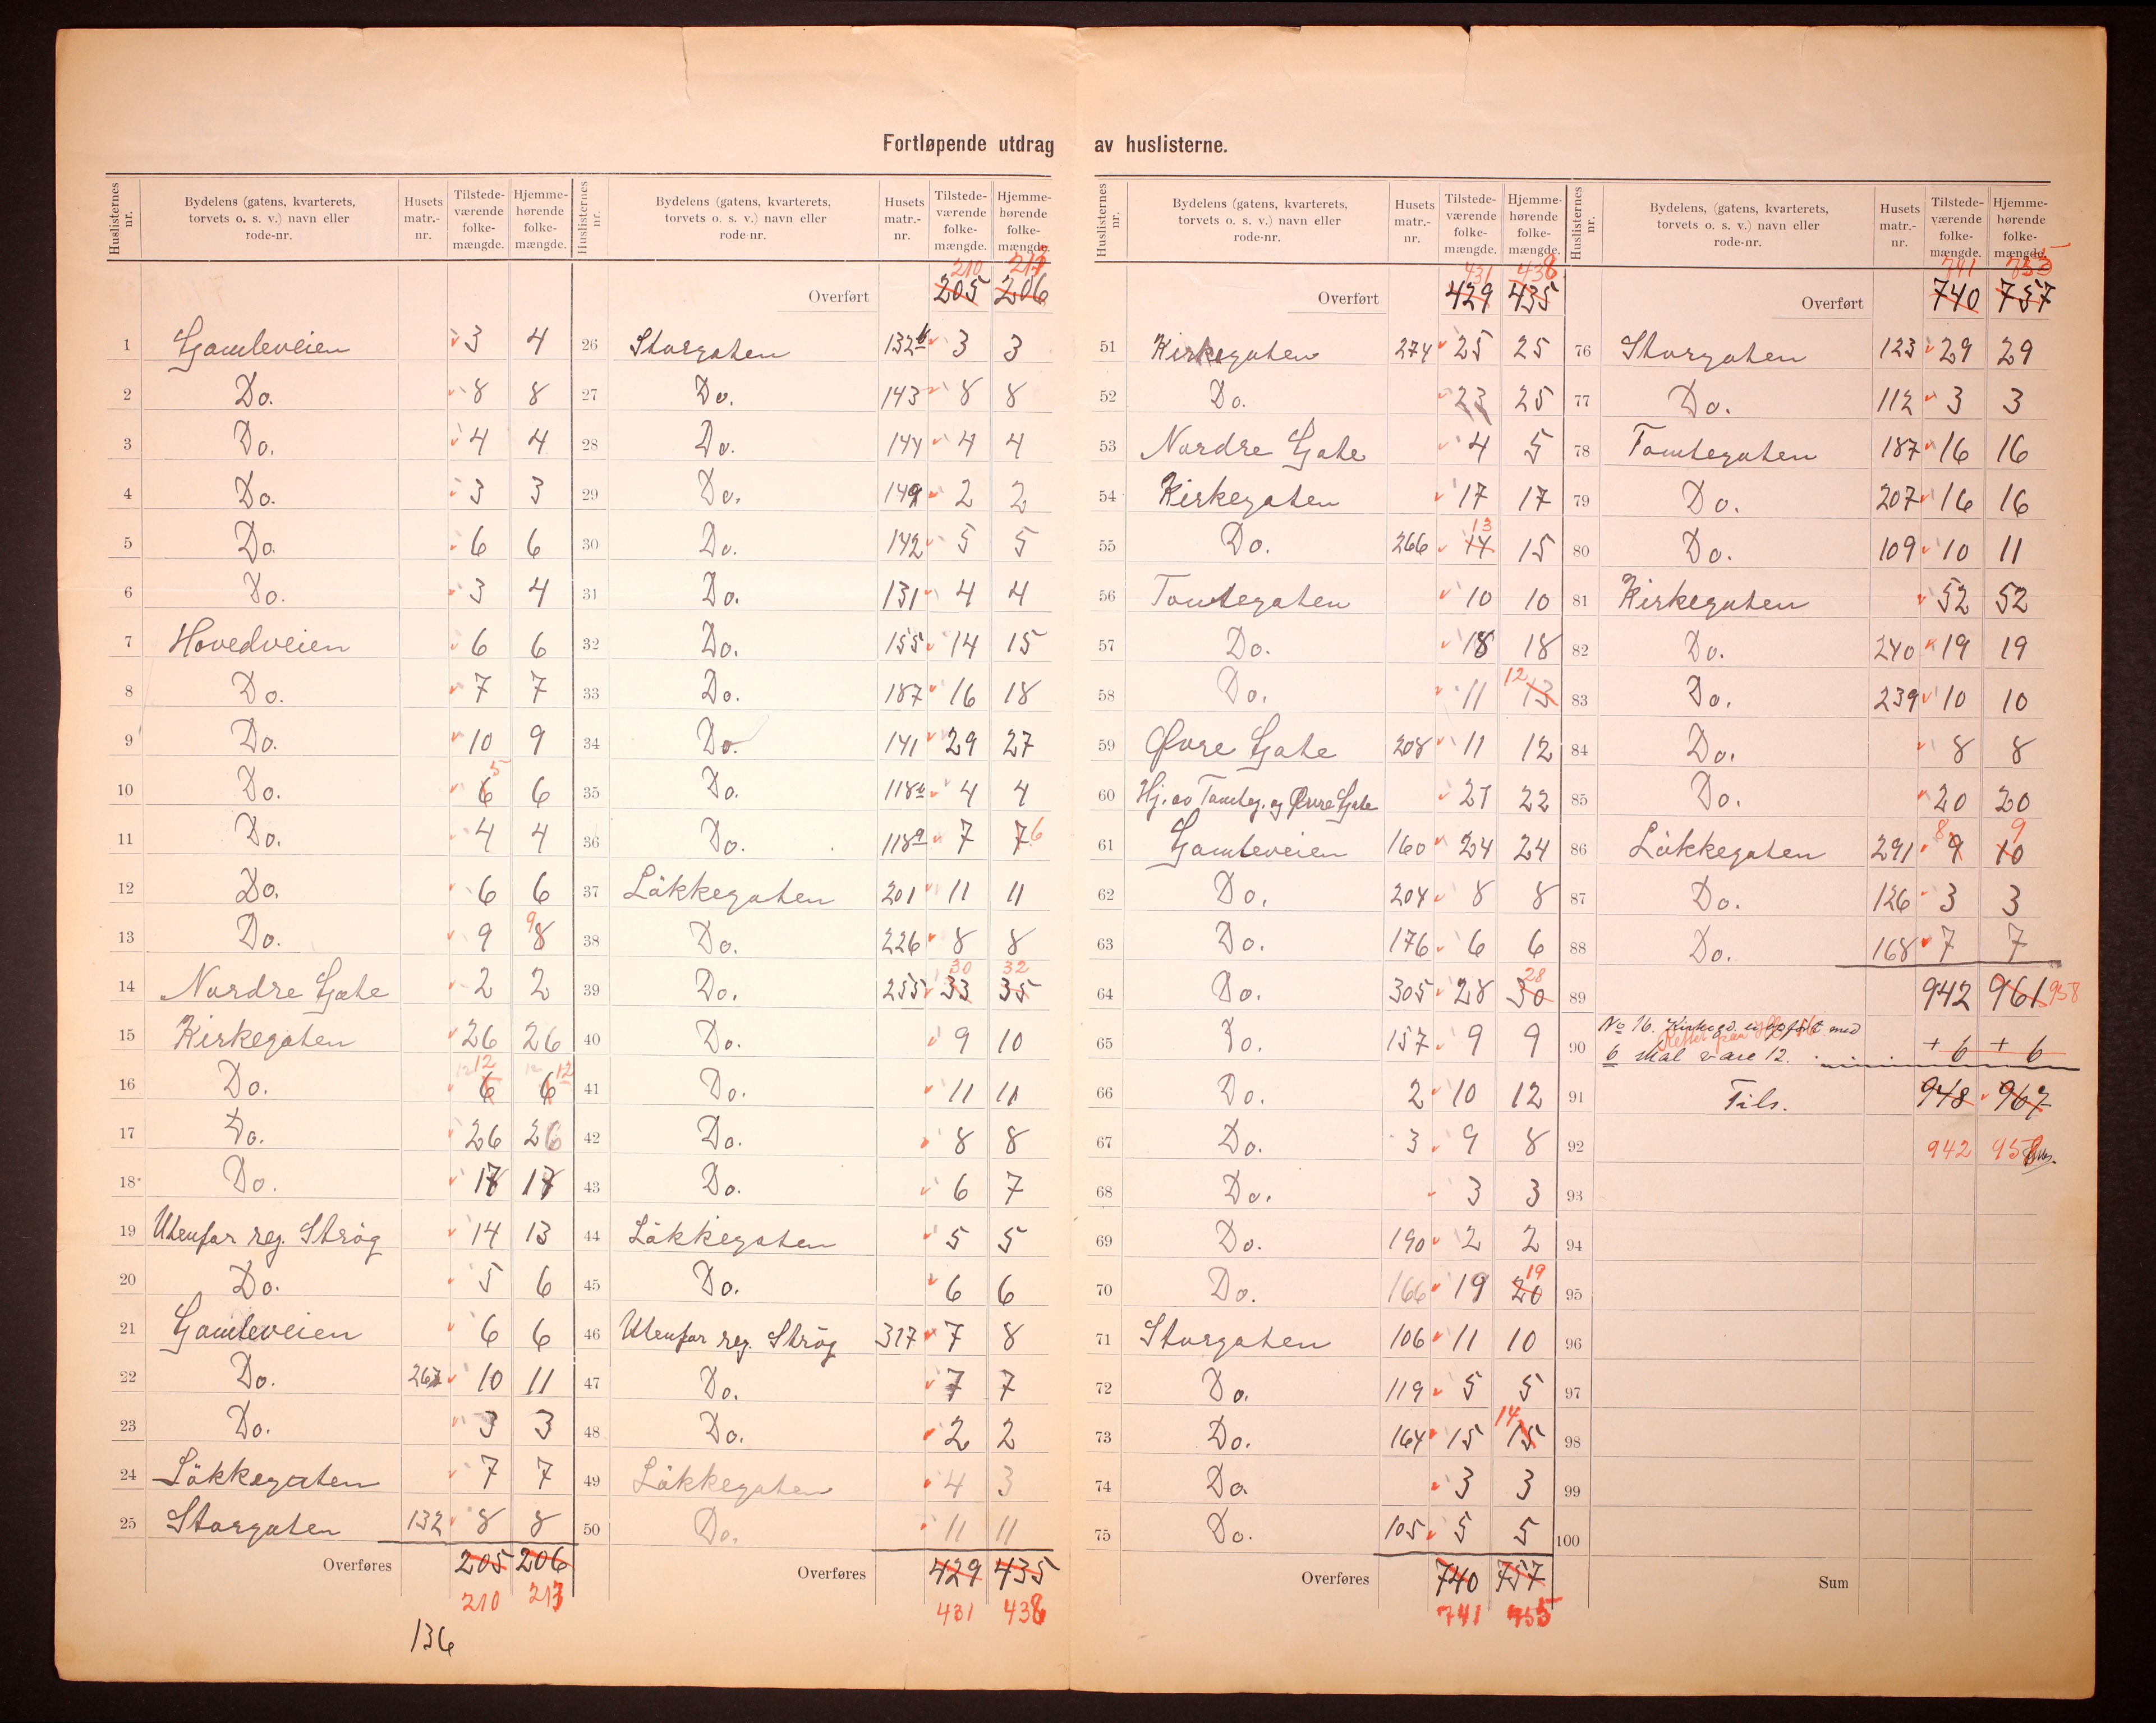 Fortløpende utdrag av huslisterne.
Huslisternes nr. | Bydelens (gatens, kvarterets, torvets o. s. v.) navn eller rode-nr. | Husets matr.-nr. | Tilstede-værende folke-mængde. | Hjemme-hørende folke-mængde.
1 Gamleveien 3 4
2 Do. 8 8
3 Do. 4 4
4 Do. 3 3
5 Do. 6 6
6 Do. 3 4
7 Hovedveien 6 6
8 Do. 7 7
9 Do. 10 9
10 Do. 6 5 6
11 Do. 4 4
12 Do. 6 6
13 Do. 9 8 9
14 Nordre Gate 2 2
15 Kirkegaten 26 26
16 Do. 6 12 6 12
17 Do. 26 26
18 Do. 17 17
19 Utenfor reg. Strøg 14 13
20 Do. 5 6
21 Gamleveien 6 6
22 Do. 267 10 11
23 Do. 3 3
24 Løkkegaten 7 7
25 Storgaten 132 8 8
Overføres 205 206
210 213
136
Huslisternes nr. | Bydelens (gatens, kvarterets, torvets o. s. v.) navn eller rode-nr. | Husets matr.-nr. | Tilstede-værende folke-mængde. | Hjemme-hørende folke-mængde.
210 213
Overført 205 206
26 Storgaten 132b 3 3
27 Do. 143 8 8
28 Do. 144 4 4
29 Do. 149 2 2
30 Do. 142 5 5
31 Do. 131 4 4
32 Do. 155 14 15
33 Do. 187 16 18
34 Do. 141 29 27
35 Do. 118b 4 4
36 Do. 118a 7 7 6
37 Løkkegaten 201 11 11
38 Do. 226 8 8
39 Do. 255 33 30 35 32
40 Do. 9 10
41 Do. 11 11
42 Do. 8 8
43 Do. 6 7
44 Løkkegaten 5 5
45 Do. 6 6
46 Utenfor reg. Strøg 317 7 8
47 Do. 7 7
48 Do. 2 2
49 Løkkegaten 4 3
50 Do. 11 11
Overføres 429 435
431 438
Huslisternes nr. | Bydelens (gatens, kvarterets, torvets o. s. v.) navn eller rode-nr. | Husets matr.-nr. | Tilstede-værende folke-mængde. | Hjemme-hørende folke-mængde.
431 438
Overført 429 435
51 Kirkegaten 274 25 25
52 Do. 23 25
53 Nordre Gate 4 5
54 Kirkegaten 17 17
55 Do. 266 14 13 15
56 Tomtegaten 10 10
57 Do. 18 18
58 Do. 11 13 12
59 Øvre Gate 208 11 12
60 Hj. av Tomteg. og Øvre Gate 21 22
61 Gamleveien 160 24 24
62 Do. 204 8 8
63 Do. 176 6 6
64 Do. 305 28 30 28
65 Do. 157 9 9
66 Do. 2 10 12
67 Do. 3 9 8
68 Do. 3 3
69 Do. 190 2 2
70 Do. 166 19 20 19
71 Storgaten 106 11 10
72 Do. 119 5 5
73 Do. 164 15 15 14
74 Do 3 3
75 Do. 105 5 5
Overføres 740 757
741 755
Huslisternes nr. | Bydelens, (gatens, kvarterets, torvets o. s. v.) navn eller rode-nr. | Husets matr.-nr. | Tilstede-værende folke-mængde. | Hjemme-hørende folke-mængde.
741 755
Overført 740 757
76 Storgaten 123 29 29
77 Do. 112 3 3
78 Tomtegaten 187 16 16
79 Do. 207 16 16
80 Do. 109 10 11
81 Kirkegaten 52 52
82 Do. 240 19 19
83 Do. 239 10 10
84 Do. 8 8
85 Do. 20 20
86 Løkkegaten 291 9 8 10 9
87 Do. 126 3 3
88 Do. 168 7 7
89 942 961 958
90 No 16. opført med
6 skal være 12. + 6 + 6
91 Tils. 948 967
92 942 958
93
94
95
96
97
98
99
100
Sum